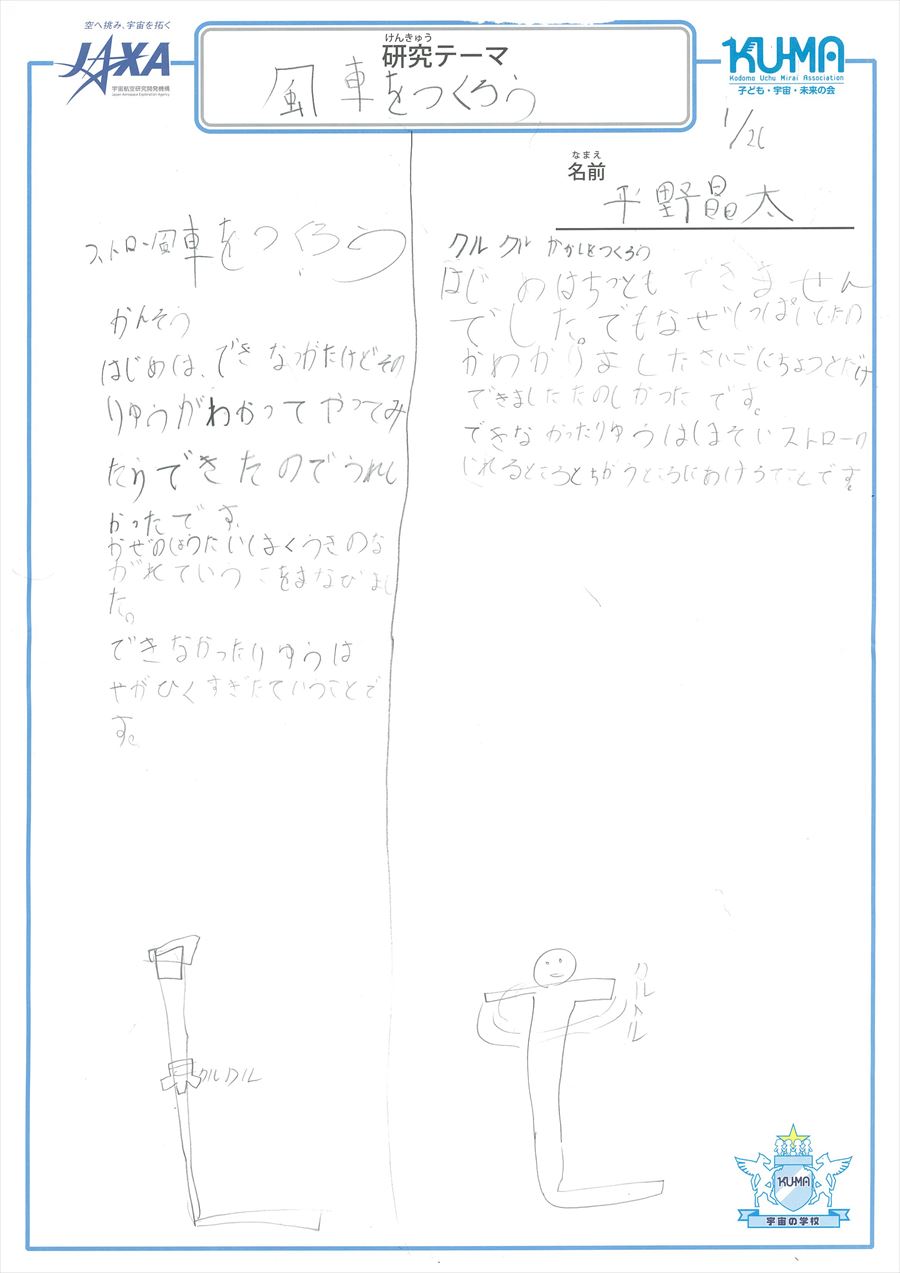 空へ挑み、宇宙を拓く
JAXA
宇宙航空研究開発機構
Japan Aerospace Exploration Agency
けんきゅう
研究テーマ
風車をつくろう
KU-MA
Kodomo Uchu Mirai Association
子ども・宇宙・未来の会
1/26
なまえ
名前
平野晶太
ストロー風車をつくろう
かんそう
はじめは、できなっがたけどその
りゅうがわかってやってみ
たりできたのでうれし
かったです。
かぜのほうたいしはくうきのな
がれていうこをまなびまし
た。
できなかったりゆうは
やがひくすぎたていうことで
す。
クルクルかかしをつくろう
はじめはちっともできません
でした。でもなぜしっぱいしたの
かわかりましたさいごにちょっとだけ
できましたたのしかったです。
できなかったりゆうはほそいストローの
いれるところとちがうところにあけうてことです。
クルクル
クルクル
KU-MA
宇宙の学校